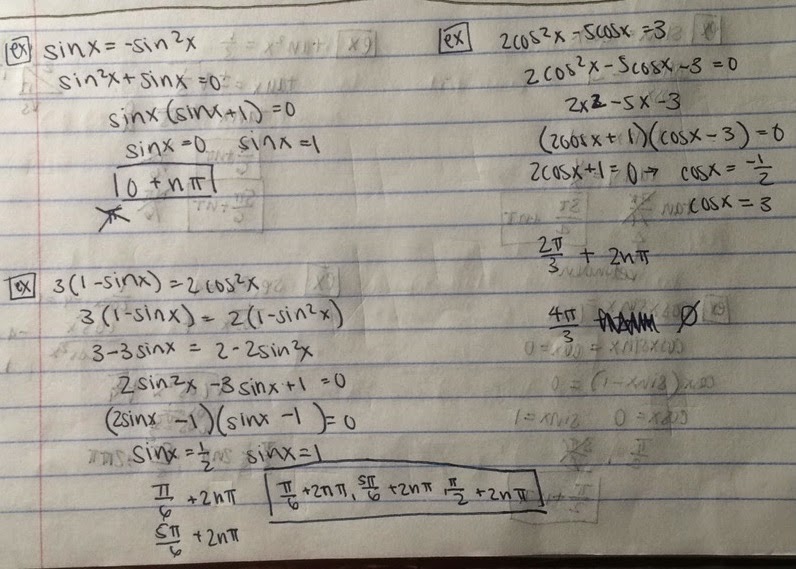 ex sinx = -sin²x
sin²x + sinx = 0
sinx (sinx+1) = 0
sinx = 0 sinx = 1
0 + nπ
π
ex 2cos²x - 5cosx = 3
2cos²x - 5cosx - 3 = 0
2x2 - 5x - 3
(2cosx + 1)(cosx - 3) = 0
2cosx + 1 = 0 → cosx = -1/2
cosx = 3
2π/3 + 2nπ
4π/3 ∅
ex 3(1-sinx) = 2cos²x
3(1-sinx) = 2(1-sin²x)
3-3sinx = 2-2sin²x
2sin²x - 3sinx + 1 = 0
(2sinx - 1)(sinx - 1) = 0
sinx = 1/2 sinx = 1
π/6 + 2nπ π/6 + 2nπ, 5π/6 + 2nπ, π/2 + 2nπ
5π/6 + 2nπ